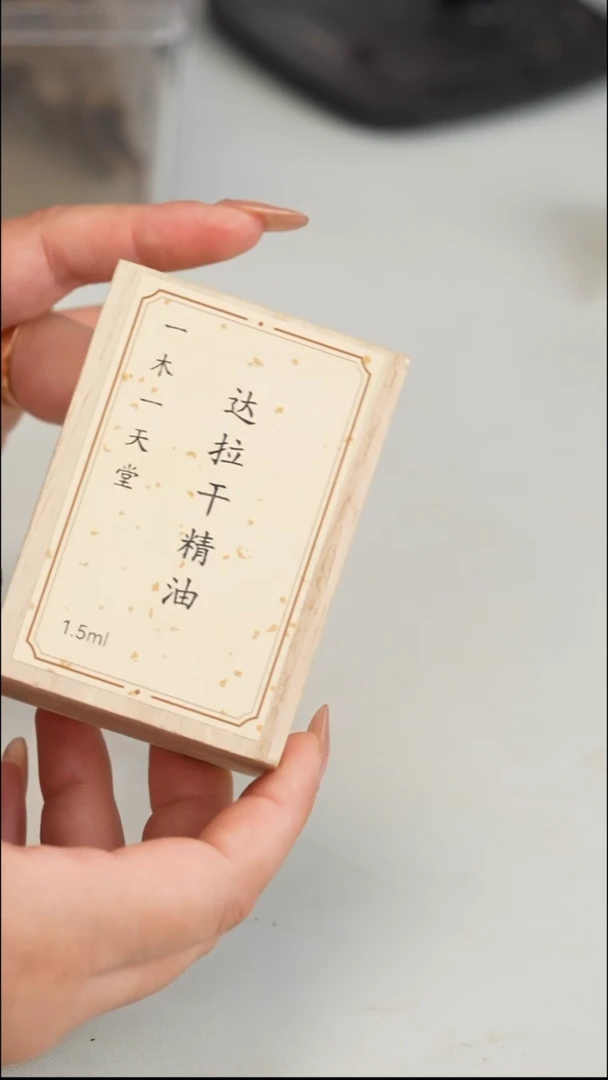 一木一天堂
达拉干精油
1.5ml